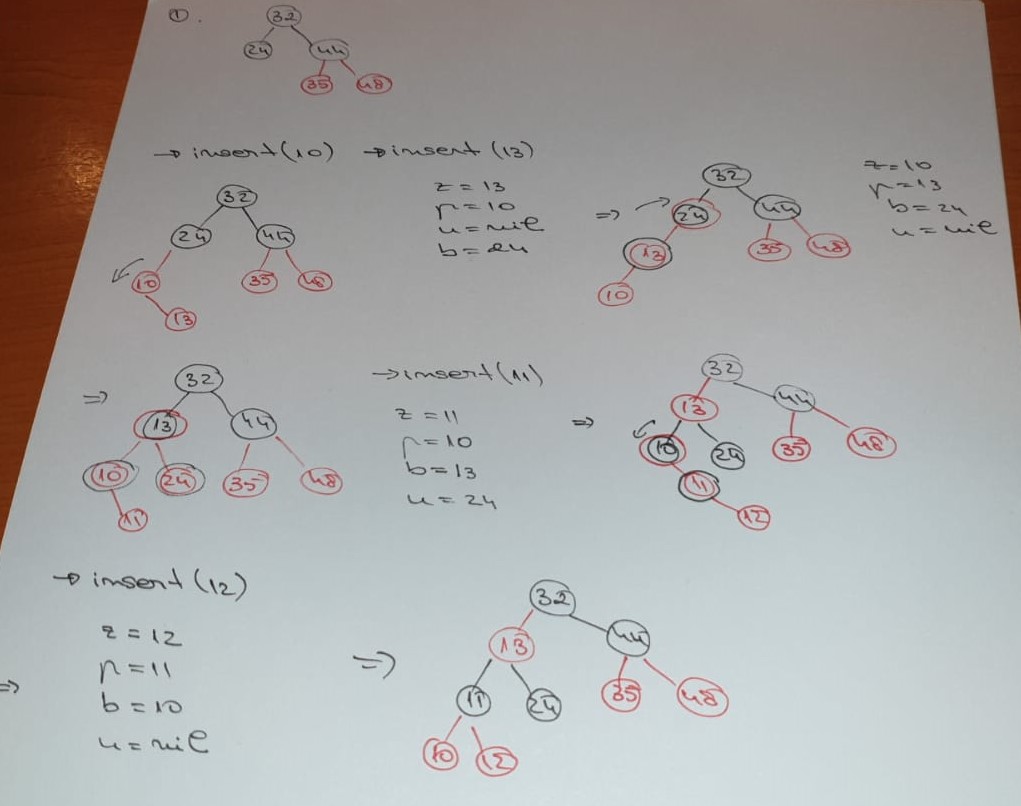 ①.
32
24 44
35 48
→ insert(10) → insert(13)
32
24 44
10 35 48
13
z = 13
p = 10
u = nil
b = 24
⇒
32
24 44
13 35 48
10
z = 10
p = 13
b = 24
u = nil
⇒
32
13 44
10 24 35 48
11
→ insert(11)
z = 11
p = 10
b = 13
u = 24
⇒
32
13 44
10 24 35 48
11
12
→ insert(12)
z = 12
p = 11
b = 10
u = nil
⇒
⇒
32
13 44
11 24 35 48
10 12